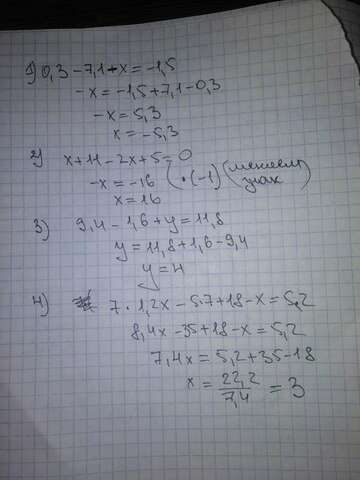 1) 0,3 - 7,1 - x = -1,5
-x = -1,5 + 7,1 - 0,3
-x = 5,3
x = -5,3
2) x + 11 - 2x + 5 = 0
-x = -16 | · (-1) (меняем знак)
x = 16
3) 9,4 - 1,6 + y = 11,8
y = 11,8 + 1,6 - 9,4
y = 4
4) 7 · 1,2x - 5·7 + 18 - x = 5,2
8,4x - 35 + 18 - x = 5,2
7,4x = 5,2 + 35 - 18
x = 22,2/7,4 = 3